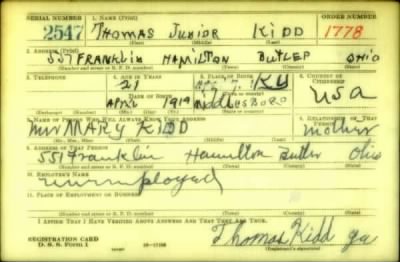 SERIAL NUMBER 1. NAME (Print) ORDER NUMBER
2547 THOMAS JUNIOR KIDD 1778
(First) (Middle) (Last)
2. ADDRESS (Print)
551 FRANKLIN HAMILTON BUTLER OHIO
(Number and street or R. F. D. number) (Town) (County) (State)
3. TELEPHONE 4. AGE IN YEARS 5. PLACE OF BIRTH 6. COUNTRY OF CITIZENSHIP
21 KY
DATE OF BIRTH Middlesboro USA
April 1919
(Exchange) (Number) (Mo.) (Day) (Yr.) (State or country)
7. NAME OF PERSON WHO WILL ALWAYS KNOW YOUR ADDRESS 8. RELATIONSHIP OF THAT PERSON
Mrs MARY KIDD mother
(Mr., Mrs., Miss) (First) (Middle) (Last)
9. ADDRESS OF THAT PERSON
551 Franklin Hamilton Butler Ohio
(Number and street or R. F. D. number) (Town) (County) (State)
10. EMPLOYER'S NAME
unemployed
11. PLACE OF EMPLOYMENT OR BUSINESS
(Number and street or R. F. D. number) (Town) (County) (State)
I AFFIRM THAT I HAVE VERIFIED ABOVE ANSWERS AND THAT THEY ARE TRUE.
REGISTRATION CARD Thomas Kidd
D. S. S. Form 1 (Registrant's signature)